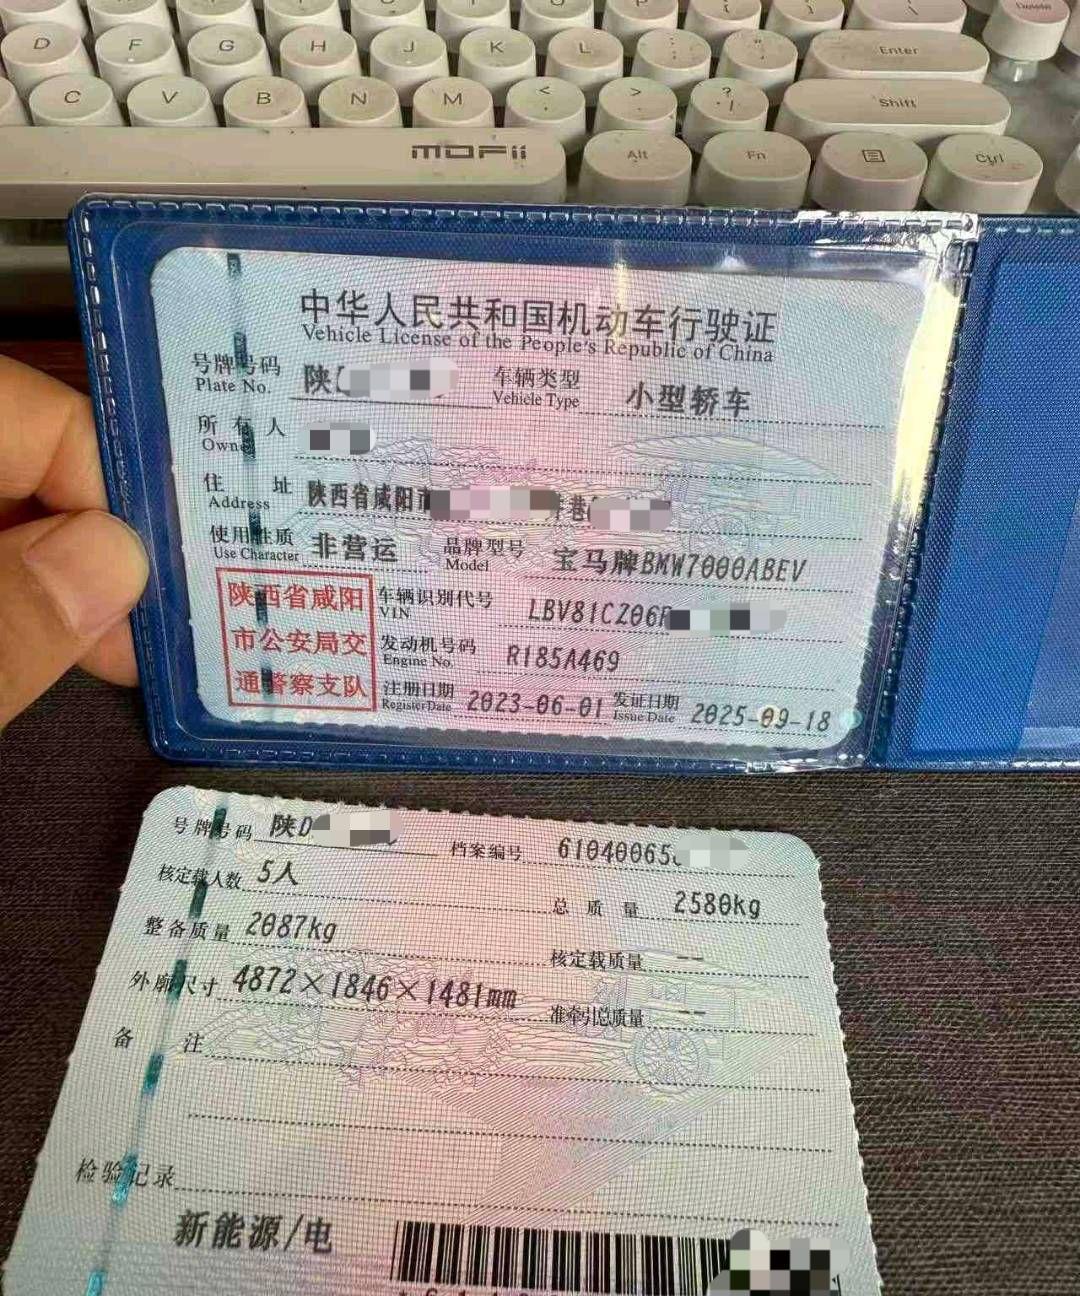 D F G H J K L : ; " ' Enter
C V B N M < , > . ? / Shift
MOFii Alt Fn Ctrl
中华人民共和国机动车行驶证
Vehicle License of the People's Republic of China
号牌号码 陕 车辆类型 小型轿车
Plate No. Vehicle Type
所有人
Owner
住址 陕西省咸阳市 巷
Address
使用性质 非营运 品牌型号 宝马牌BMW7000ABEV
Use Character Model
陕西省咸阳
市公安局交
通警察支队
车辆识别代号 LBV81CZ06
VIN
发动机号码 R185A469
Engine No.
注册日期 2023-06-01 发证日期 2025-09-18
Register Date Issue Date
号牌号码 陕D 档案编号 610400065
核定载人数 5人 总质量 2580kg
整备质量 2087kg 核定载质量 --
外廓尺寸 4872×1846×1481mm 准牵引总质量 --
备注
检验记录
新能源/电